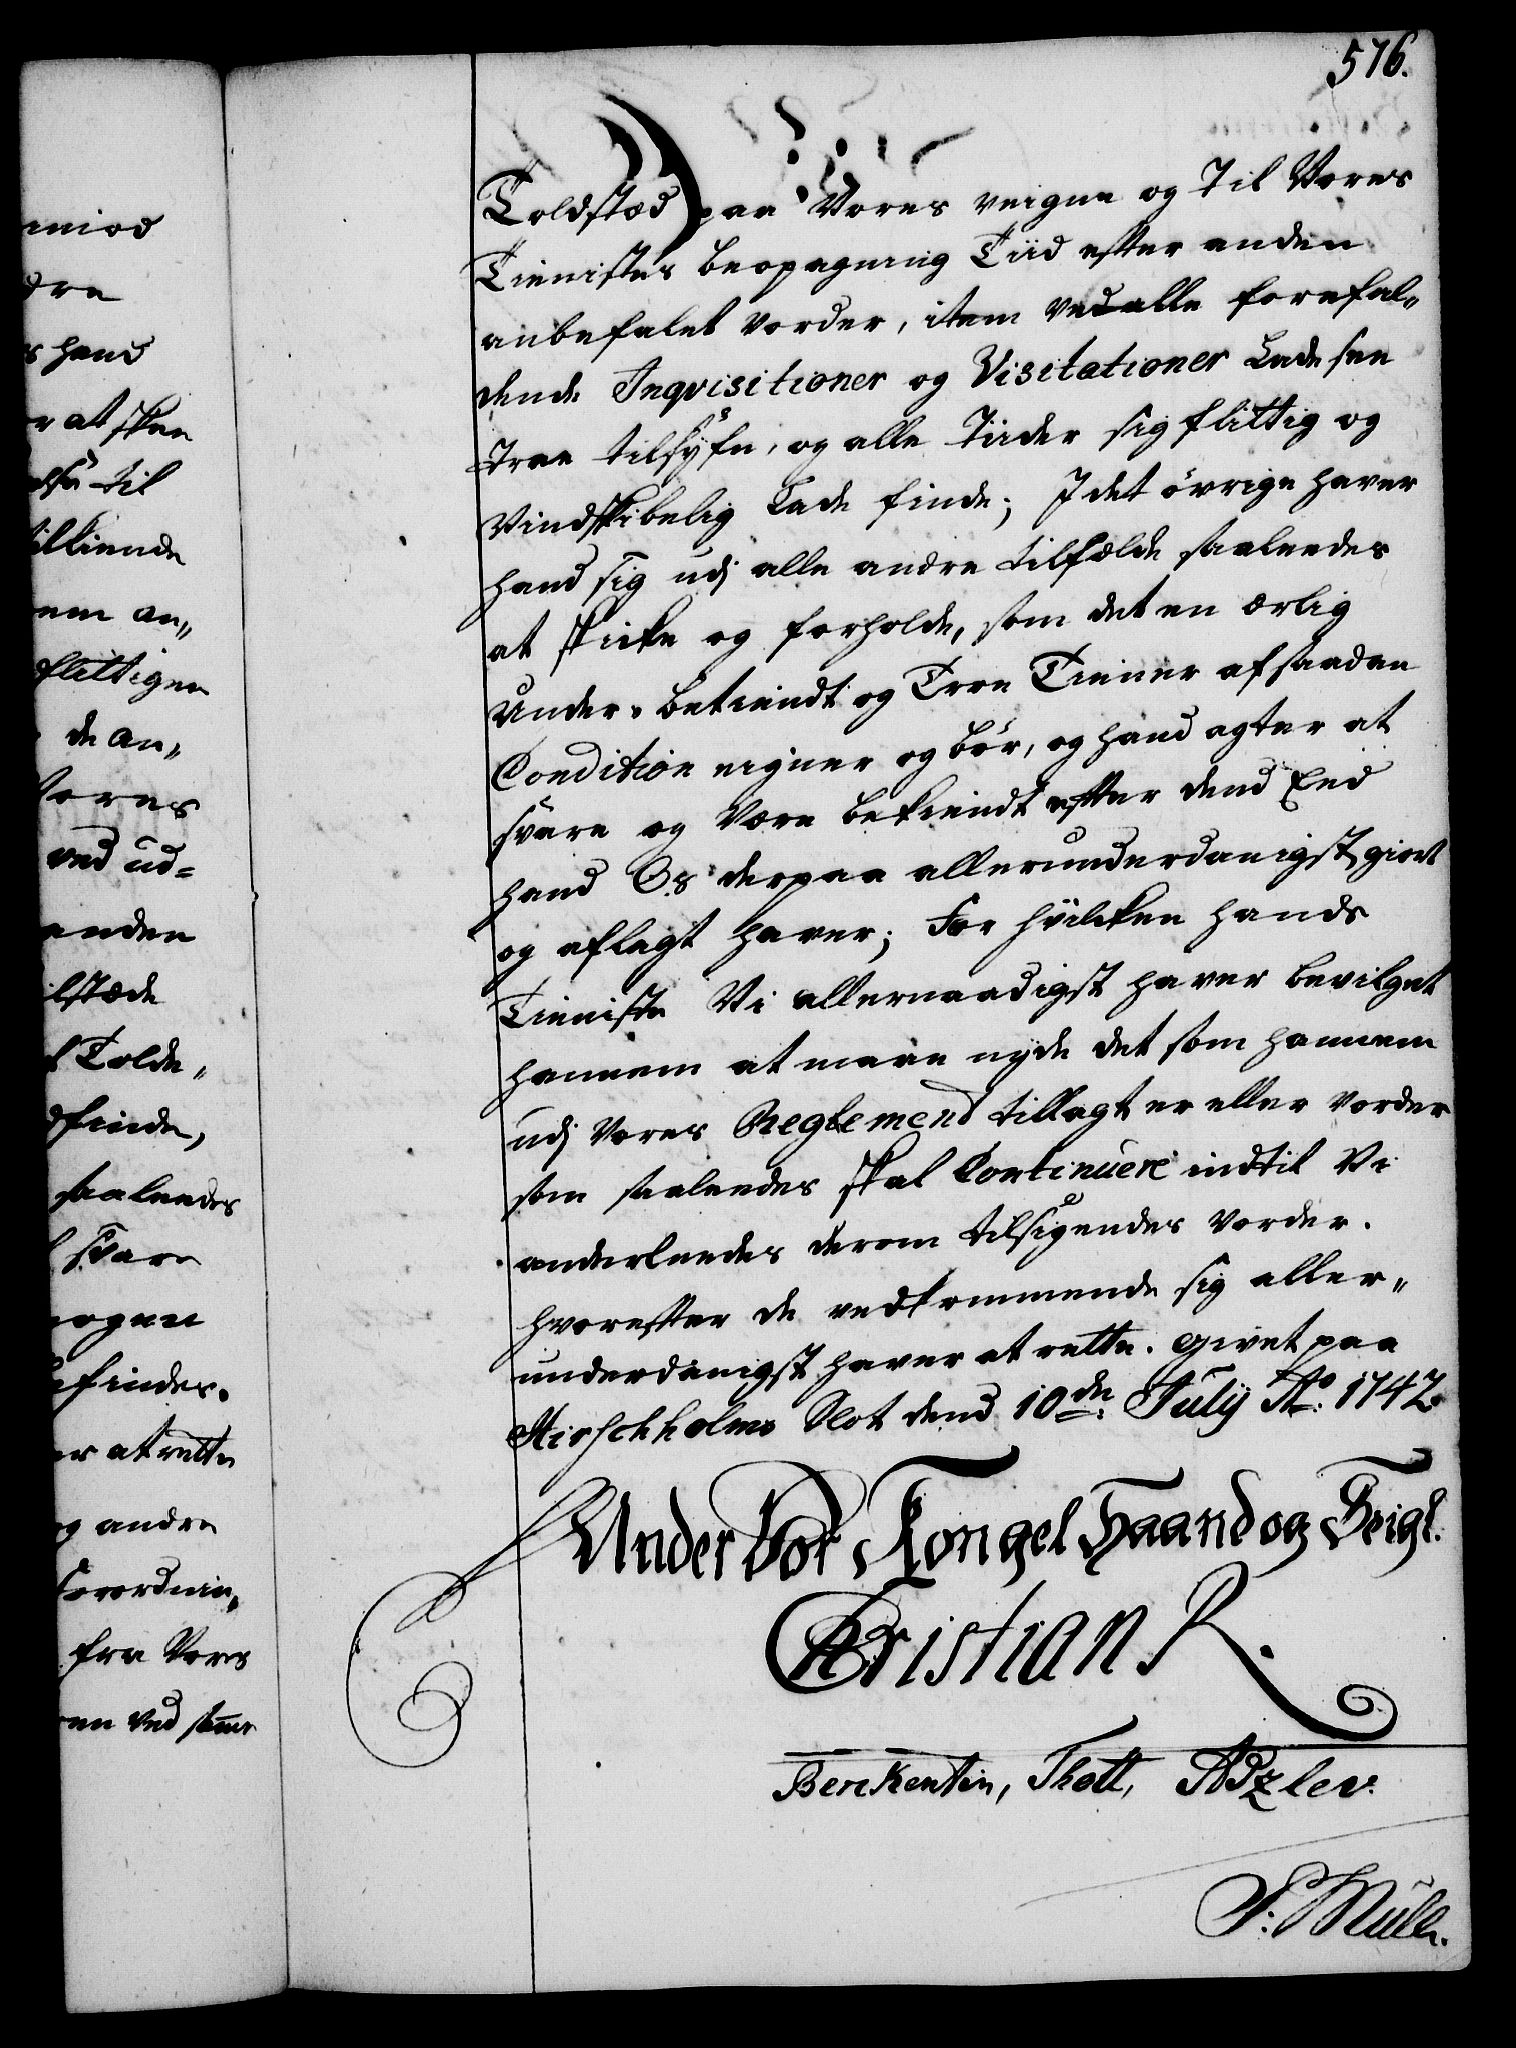 576.
Toldstæd paa Vores veigne og Til Vores
Tienistes beopagtning Tiid efter anden
anbefalet vorder, item ved alle forefal„
dende Inqvisitioner og Visitationer Lade see
troe tilsÿfn, og alle Tiider sig flittig og
vindskibelig Lade finde; I det öfrige haver
hand sig udj alle andre tilfælde saaleedes
at skicke og forholde, som det en ærlig
Under-betiendt og Troe Tiener af saadan
Condition eigner og bör, og hand agter at
svare og være bekiendt efter dend Eed
hand Os derpaa allerunderdanigst giort
og aflagt haver; For hvilcken hands
Tieniste Vi allernaadigst haver bevilget
hannem at maae nyde det som hannem
udj Vores Reglement tillagt er eller vorder
som saaleedes skal Continuere indtil Vi
anderleedes derom tilsigendes vorder.
hvorefter de vedkommende sig aller„
underdanigst haver at rette. Givet paa
Hirschholms Slot dend 10de: July Ao: 1742.
Under Vor Kongel Haand og Seigl.
Christian R.
Berckentin, Thott,
S: Müller.
eniod
dre
s hand
r at skee
til
tilkiende
nem an„
flittigen
de an„
Vores
ved ud-
anden
ilstæde
l Tolde„
finde,
saaleedes
svare
nogen
befindes.
er at rette
og andre
Forordnin„
fra Vores
en ved samme